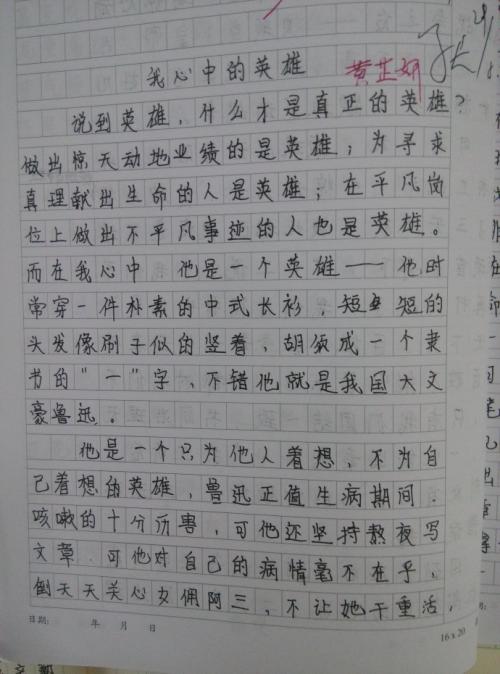 我心中的英雄
说到英雄，什么才是真正的英雄？
做出惊天动地业绩的是英雄；为寻求
真理献出生命的人是英雄；在平凡岗
位上做出不平凡事迹的人也是英雄。
而在我心中，他是一个英雄——他时
常穿一件朴素的中式长衫，短短的
头发像刷子似的竖着，胡须成一个隶
书的"一"字，不错他就是我国大文
豪鲁迅。
他是一个只为他人着想，不为自
己着想的英雄，鲁迅正值生病期间，
咳嗽的十分厉害，可他还坚持熬夜写
文章，可他对自己的病情毫不在乎，
倒天天关心女佣阿三，不让她干重活，
日期： 年 月 日
16×20